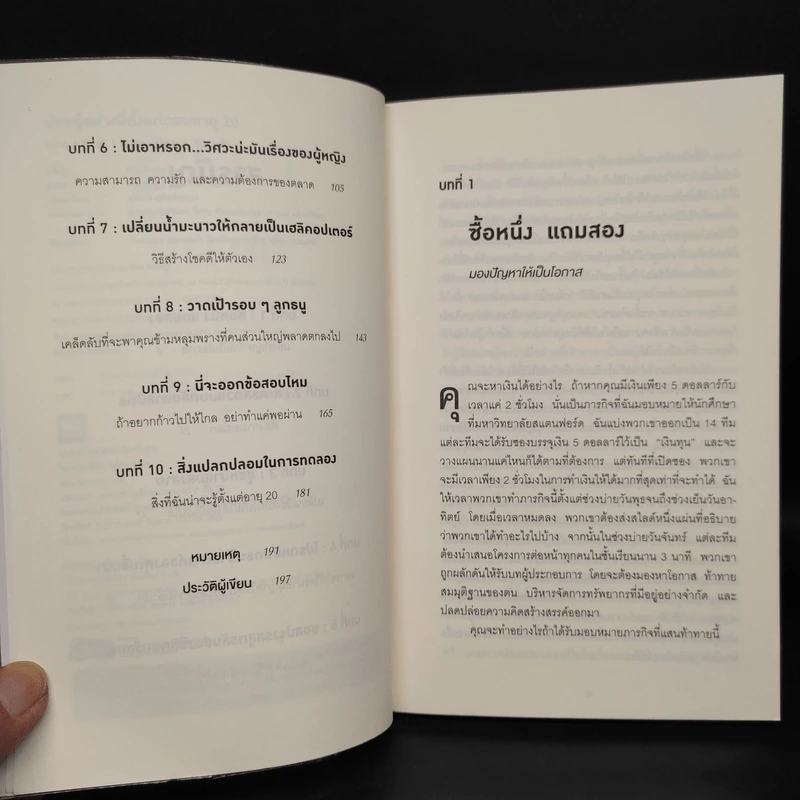 บทที่ 6 : ไม่เอาหรอก...วิศวะน่ะมันเรื่องของผู้หญิง
ความสามารถ ความรัก และความต้องการของตลาด 105
บทที่ 7 : เปลี่ยนน้ำมะนาวให้กลายเป็นเฮลิคอปเตอร์
วิธีสร้างโชคดีให้ตัวเอง 123
บทที่ 8 : วาดเป้ารอบ ๆ ลูกธนู
เคล็ดลับที่จะพาคุณข้ามหลุมพรางที่คนส่วนใหญ่พลาดตกลงไป 143
บทที่ 9 : นี่จะออกข้อสอบไหม
ถ้าอยากก้าวไปให้ไกล อย่าทำแค่พอผ่าน 165
บทที่ 10 : สิ่งแปลกปลอมในการทดลอง
สิ่งที่ฉันน่าจะรู้ตั้งแต่อายุ 20 181
หมายเหตุ 191
ประวัติผู้เขียน 197
บทที่ 1
ซื้อหนึ่ง แถมสอง
มองปัญหาให้เป็นโอกาส
คุณจะหาเงินได้อย่างไร ถ้าหากคุณมีเงินเพียง 5 ดอลลาร์กับ
เวลาแค่ 2 ชั่วโมง นั่นเป็นภารกิจที่ฉันมอบหมายให้นักศึกษา
ที่มหาวิทยาลัยสแตนฟอร์ด ฉันแบ่งพวกเขาออกเป็น 14 ทีม
แต่ละทีมจะได้รับซองบรรจุเงิน 5 ดอลลาร์ไว้เป็น “เงินทุน” และจะ
วางแผนนานแค่ไหนก็ได้ตามที่ต้องการ แต่ทันทีที่เปิดซอง พวกเขา
จะมีเวลาเพียง 2 ชั่วโมงในการทำเงินให้ได้มากที่สุดเท่าที่จะทำได้ ฉัน
ให้เวลาพวกเขาทำภารกิจนี้ตั้งแต่ช่วงบ่ายวันพุธจนถึงช่วงเย็นวันอา-
ทิตย์ โดยเมื่อเวลาหมดลง พวกเขาต้องส่งสไลด์หนึ่งแผ่นที่อธิบาย
ว่าพวกเขาได้ทำอะไรไปบ้าง จากนั้นในช่วงบ่ายวันจันทร์ แต่ละทีม
ต้องนำเสนอโครงการต่อหน้าทุกคนในชั้นเรียนนาน 3 นาที พวกเขา
ถูกผลักดันให้รับบทผู้ประกอบการ โดยจะต้องมองหาโอกาส ท้าทาย
สมมุติฐานของตน บริหารจัดการทรัพยากรที่มีอยู่อย่างจำกัด และ
ปลดปล่อยความคิดสร้างสรรค์ออกมา
คุณจะทำอย่างไรถ้าได้รับมอบหมายภารกิจที่แสนท้าทายนี้